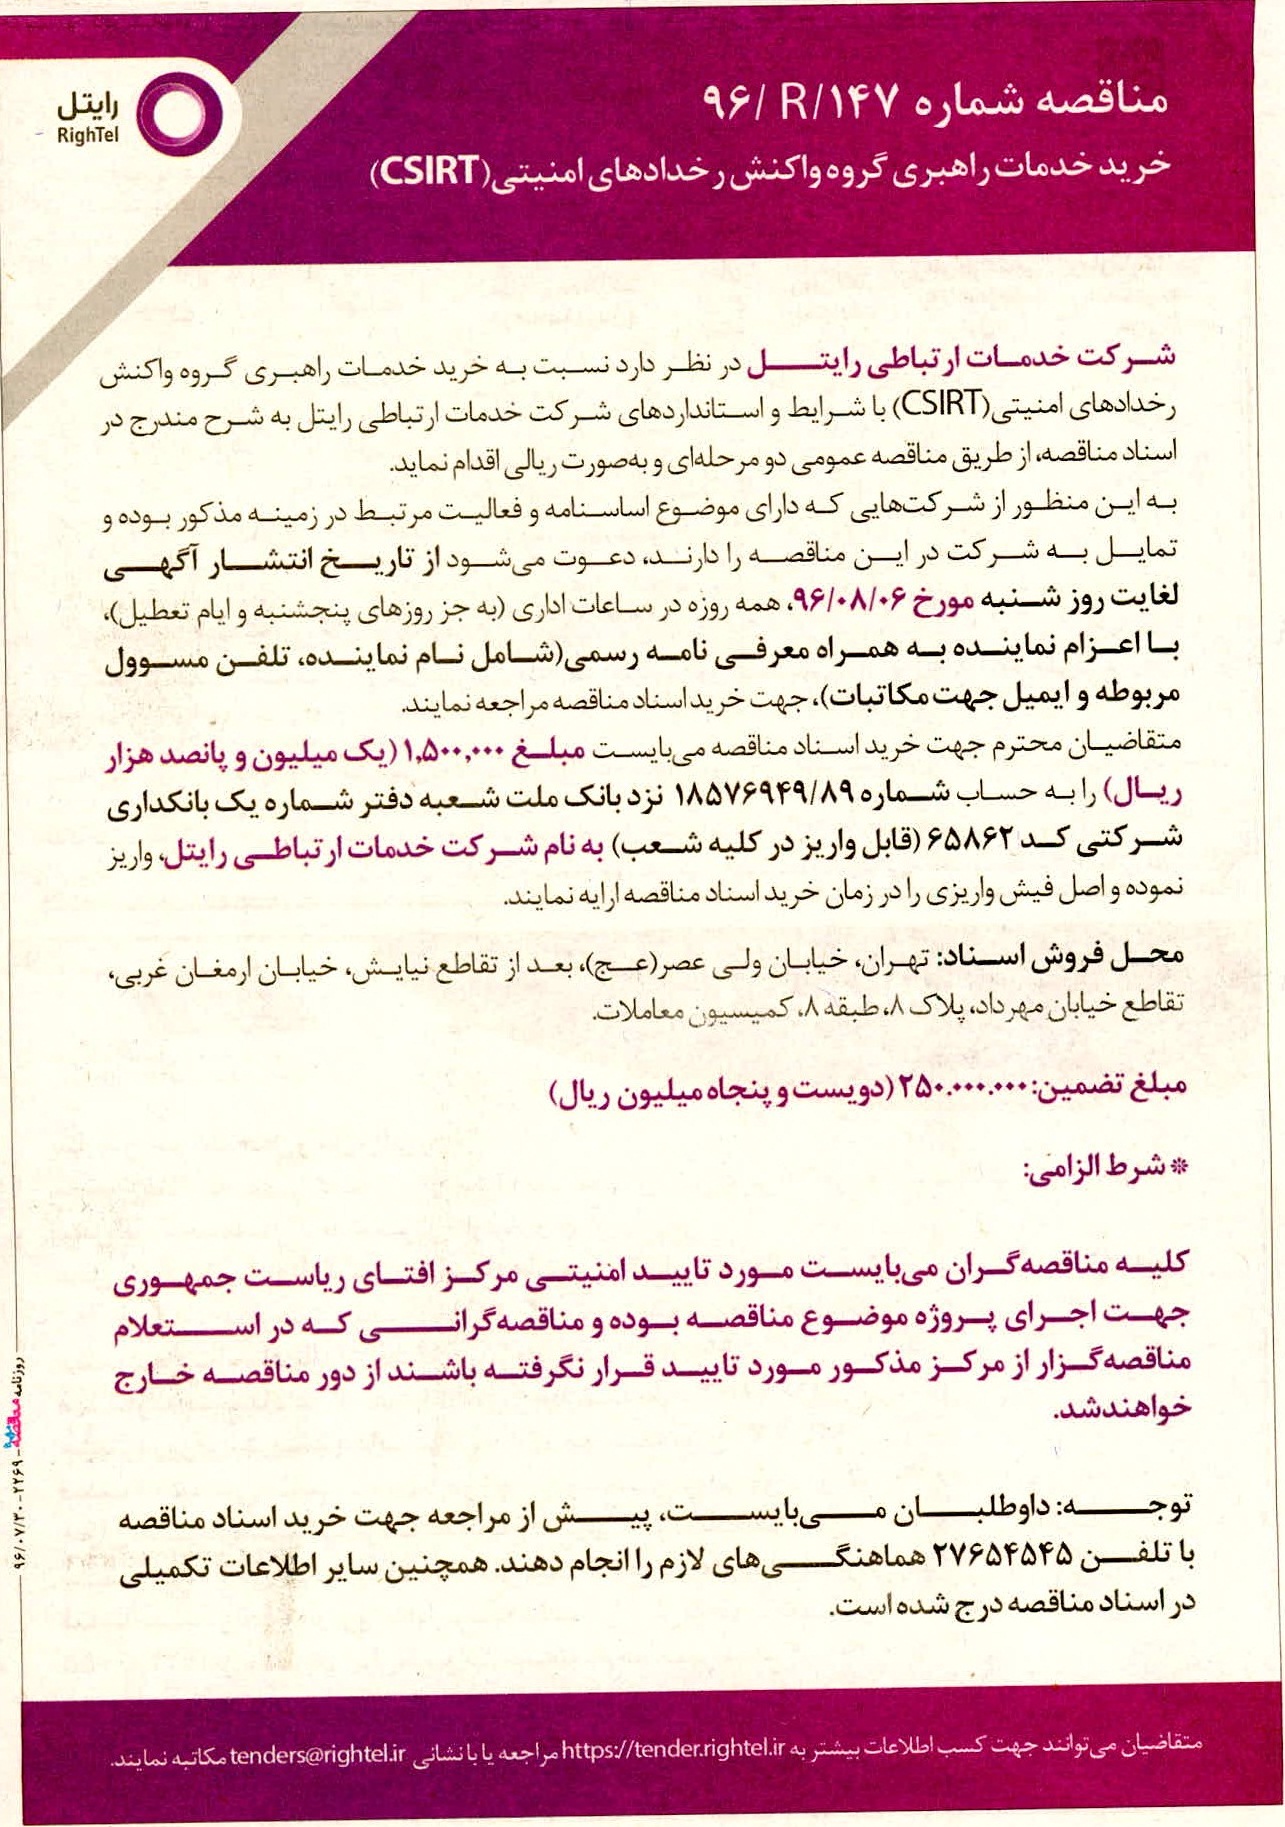 رایتل
RighTel
مناقصه شماره ۹۶/ R/۱۴۷
خرید خدمات راهبری گروه واکنش رخدادهای امنیتی(CSIRT)
شرکت خدمات ارتباطی رایتل در نظر دارد نسبت به خرید خدمات راهبری گروه واکنش
رخدادهای امنیتی(CSIRT) با شرایط و استانداردهای شرکت خدمات ارتباطی رایتل به شرح مندرج در
اسناد مناقصه، از طریق مناقصه عمومی دو مرحله‌ای و به‌صورت ریالی اقدام نماید.
به این منظور از شرکت‌هایی که دارای موضوع اساسنامه و فعالیت مرتبط در زمینه مذکور بوده و
تمایل به شرکت در این مناقصه را دارند، دعوت می‌شود از تاریخ انتشار آگهی
لغایت روز شنبه مورخ ۹۶/۰۸/۰۶، همه روزه در ساعات اداری (به جز روزهای پنجشنبه و ایام تعطیل)،
با اعزام نماینده به همراه معرفی نامه رسمی(شامل نام نماینده، تلفن مسوول
مربوطه و ایمیل جهت مکاتبات)، جهت خرید اسناد مناقصه مراجعه نمایند.
متقاضیان محترم جهت خرید اسناد مناقصه می‌بایست مبلغ ۱,۵۰۰,۰۰۰ (یک میلیون و پانصد هزار
ریال) را به حساب شماره ۱۸۵۷۶۹۴۹/۸۹ نزد بانک ملت شعبه دفتر شماره یک بانکداری
شرکتی کد ۶۵۸۶۲ (قابل واریز در کلیه شعب) به نام شرکت خدمات ارتباطی رایتل، واریز
نموده و اصل فیش واریزی را در زمان خرید اسناد مناقصه ارایه نمایند.
محل فروش اسناد: تهران، خیابان ولی عصر(عج)، بعد از تقاطع نیایش، خیابان ارمغان غربی،
تقاطع خیابان مهرداد، پلاک ۸، طبقه ۸، کمیسیون معاملات.
مبلغ تضمین: ۲۵۰.۰۰۰.۰۰۰ (دویست و پنجاه میلیون ریال)
* شرط الزامی:
کلیه مناقصه‌گران می‌بایست مورد تایید امنیتی مرکز افتای ریاست جمهوری
جهت اجرای پروژه موضوع مناقصه بوده و مناقصه‌گرانی که در استعلام
مناقصه‌گزار از مرکز مذکور مورد تایید قرار نگرفته باشند از دور مناقصه خارج
خواهندشد.
توجه: داوطلبان می‌بایست، پیش از مراجعه جهت خرید اسناد مناقصه
با تلفن ۲۷۶۵۴۵۴۵ هماهنگی‌های لازم را انجام دهند. همچنین سایر اطلاعات تکمیلی
در اسناد مناقصه درج شده است.
متقاضیان می‌توانند جهت کسب اطلاعات بیشتر به https://tender.rightel.ir مراجعه یا با نشانی tenders@rightel.ir مکاتبه نمایند.
روزنامه مناقصه - ۲۲۶۹ - ۹۶/۰۷/۳۰